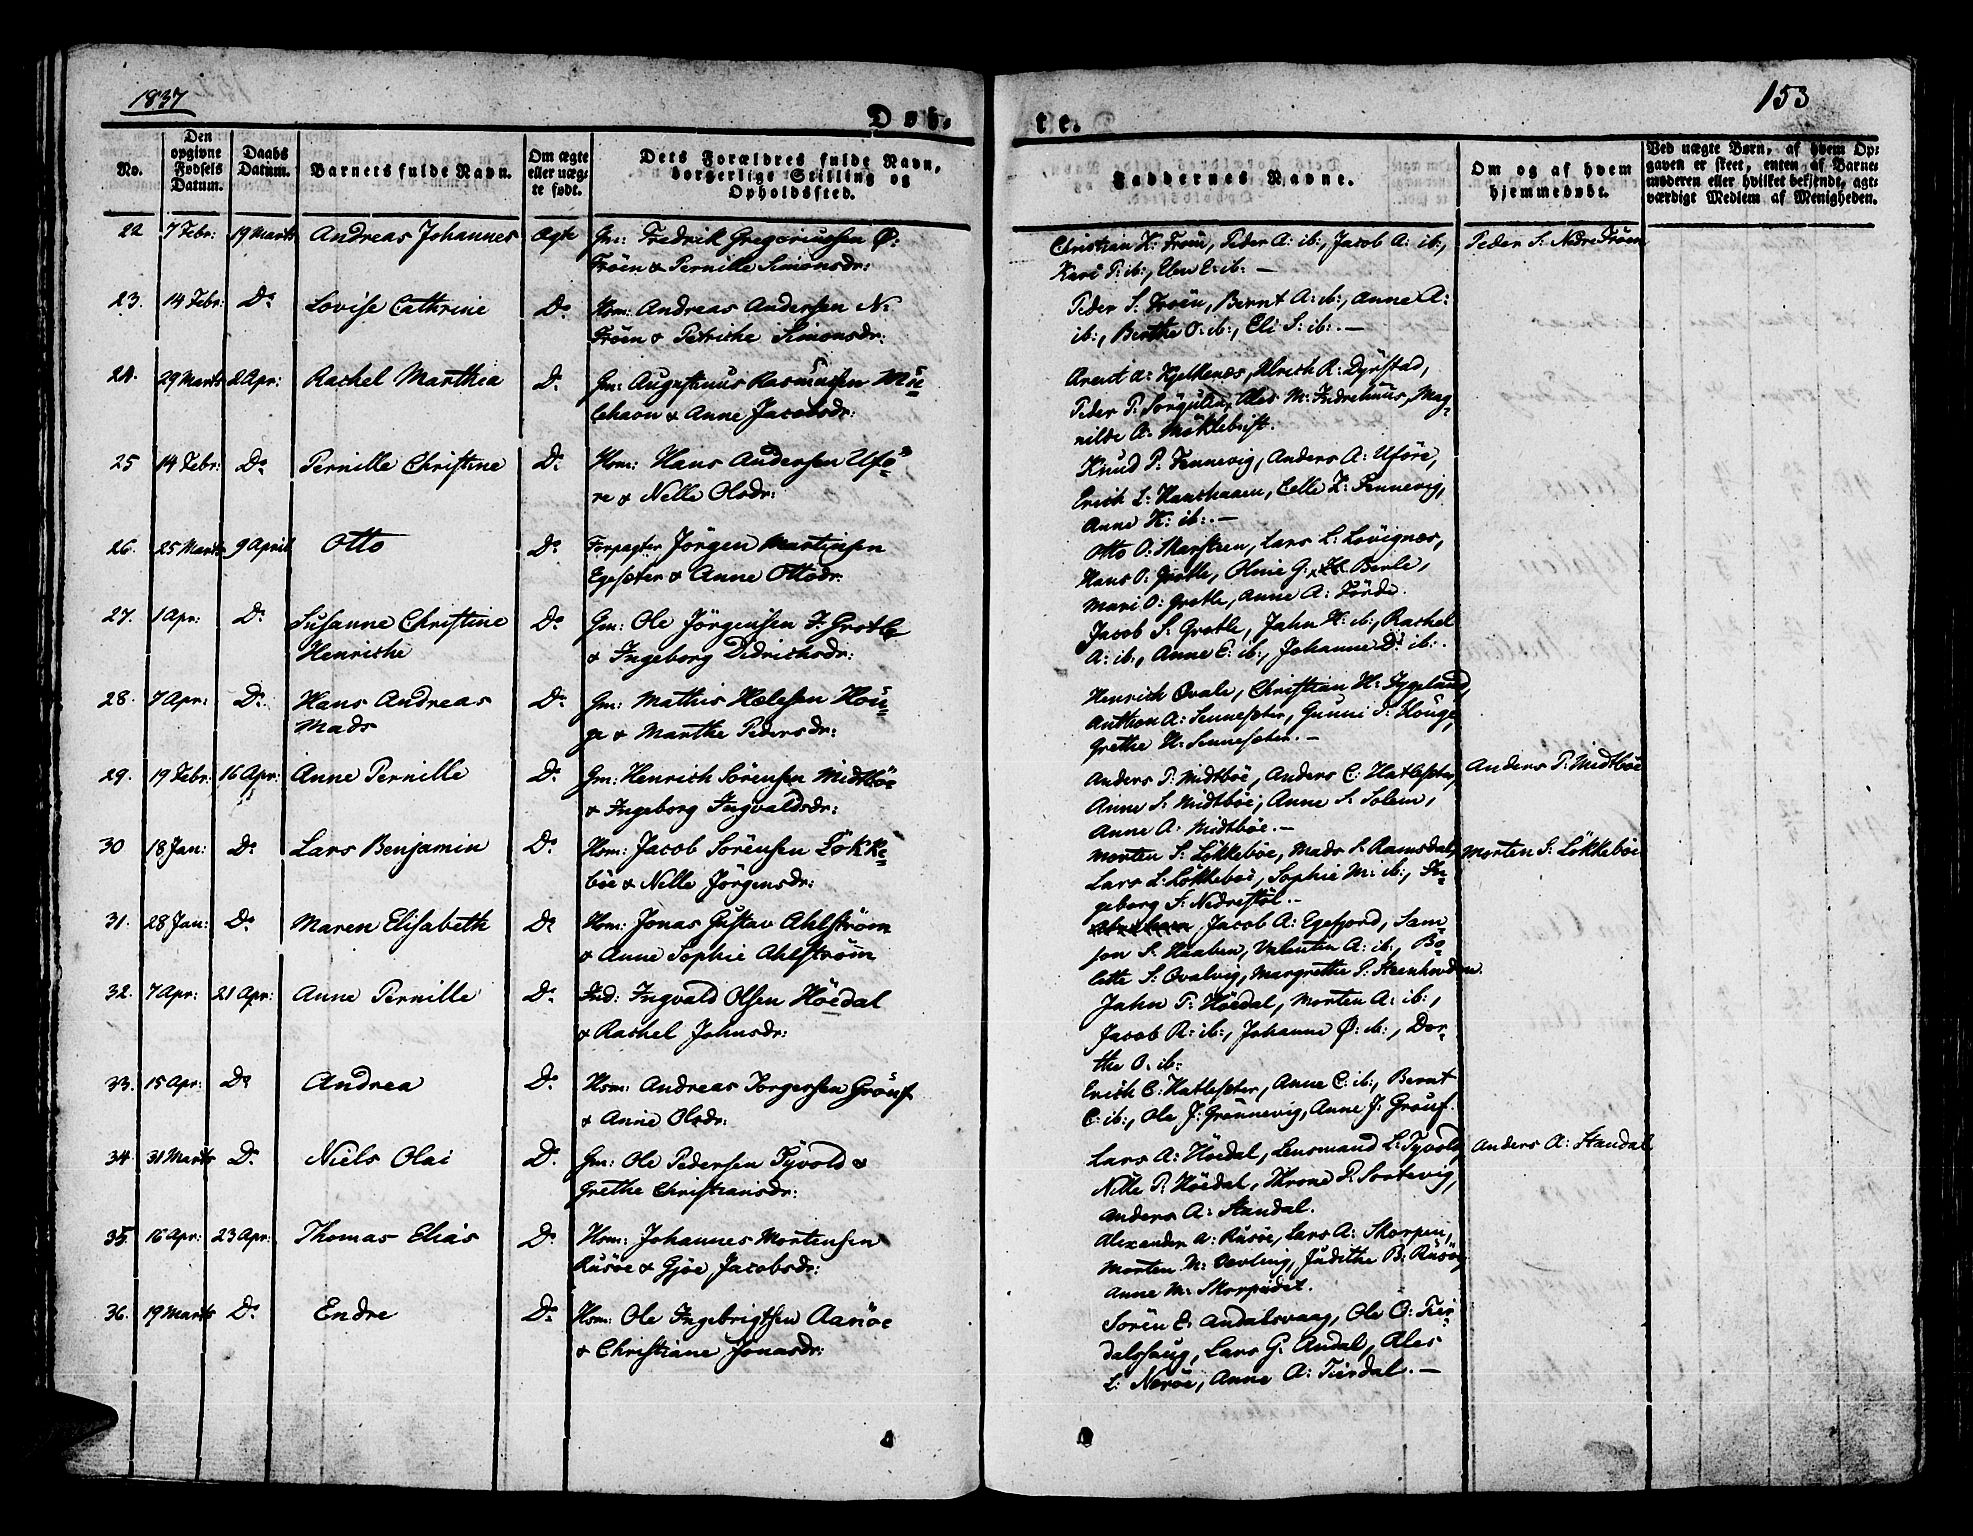 1837
153
Døb-
te.
No.
Den opgivne Fødsels Datum.
Daabs Datum.
Barnets fulde Navn.
Om ægte eller uægte født.
Dets Forældres fulde Navn, borgerlige Stilling og Opholdssted.
Faddernes Navne.
Om og af hvem hjemmedøbt.
Ved uægte Børn, af hvem Opgaven er skeet, enten af Barnemoderen eller hvilket bekjendt, agtværdigt Medlem af Menigheden.
22 7 Febr: 19 Marts Andreas Johannes Ægte Gm: Fredrik Gregoriussen Ø:
Frøen & Pernille Simonsdr:
Christian H: Frøen, Peder A: ib:, Jacob A: ib:,
Kari P: ib:, Elen E: ib: —
Peder S: Nedre Frøen
23. 14 Febr: Do Lovise Cathrine Do Hsm: Andreas Andersen N:
Frøen & Petriche Simonsdr:
Peder S: Frøen, Bernt A: ib:, Anne A:
ib:, Berthe O: ib:, Eli S: ib: —
24. 29 Marts 2 Apr: Rachel Marthea Do Gm: Augustinus Rasmussen Mö=
lehavn & Anne Jacobsdr:
Areist A: Hjelkenæs, Ulrich R: Dyrstad,
Peder P: Sörgulen, Ales M: Indrehuus, Mag-
nilde A: Möklebust.
25 14 Febr: Do Pernille Christine Do Hsm: Hans Andersen Ufö=
re & Nelle Olsdr:
Knud P: Fennevig, Anders A: Uföre,
Erich L: Hanshaaen, Celle K: Fennevig,
Anne K: ib: —
26. 25 Marts 9 April Otto Do Forpagter Jörgen Martinsen
Egesæter & Anne Ottosdr:
Otto O: Skarsteen, Lars L: Lövignæs,
Hans O: Grotle, Oline G: Berle,
Mari O: Grotle, Anne A: Förde.
27. 1 Apr: Do Susanne Christine Do Gm: Ole Jörgensen I: Grotle
Henriche & Ingeborg Didrichsdr:
Jacob S: Grotle, Jahn H: ib:, Rachel
A: ib:, Anne E: ib:, Johanne D: ib:.
28. 7 Apr: Do Hans Andreas Do Gm: Mathis Hælesen Hou=
Mads ge & Marthe Pedersdr:
Henrich Ovale, Christian H: Tygeland,
Anthon A: Sennesæter, Gunni P: Houge,
Grethe H: Sennesæter. —
29. 19 Febr: 16 Apr: Anne Pernille Do Gm: Henrich Sörensen Midtböe
& Ingeborg Ingvaldsdr:
Anders P: Midtböe, Anders C: Hatlesæter,
Anne S: Midtböe, Anne S: Solem,
Anne A: Midtböe. —
Anders P: Midtböe
30 18 Jan: Do Lars Benjamin Do Hsm: Jacob Sörensen Lökke=
böe & Nelle Jörgensdr:
Morten S: Lökkeböe, Mads P: Ramsdal,
Lars L: Lökkeböe, Sophie M: ib:, In-
geborg S: Nedrestöl. —
Morten S: Lökkeböe
31. 28 Jan: Do Maren Elisabeth Do Hsm: Jonas Gustav Ahlström
& Anne Sophie Ahlström
Jacob A: Egefjord, Sam-
son S: Haaben, Valentin A: ib:, Bo-
lette S: Qvalvig, Margrethe P: Steenhovden
32. 7 Apr: 21 Apr: Anne Pernille Do Ind: Ingvald Olsen Höedal
& Rachel Johnsdr:
Jahn P: Höedal, Morten A: ib:,
Jacob R: ib:, Johanne Ø: ib:, Dor-
the O: ib:
33. 15 Apr: Do Andrea Do Hsm: Andreas Torgersen Gröuf
& Anne Olsdr:
Erich C: Hatlesæter, Anne C: ib:, Bernt
C: ib:, Ole J: Grønnevig, Anne J: Grøuf.
34 31 Marts Do Niels Olai Do Gm: Ole Pedersen Tyvold &
Grethe Christiansdr:
Lars A: Höedal, Lensmand L: Tyvold,
Nille P: Höedal, Throne P: Sortevig,
Anders A: Standal.
Anders A: Standal
35. 16 Apr: 23 Apr: Thomas Elias Do Hsm: Johannes Mortensen
Rusöe & Gjöe Jacobsdr:
Alexander A: Rusöe, Lars A: Skorpen,
Morten M: Vevling, Judithe B: Rusöe,
Anne M: Skorpeidet.
36. 19 Marts Do Endre Do Hsm: Ole Ingebrigtsen Aanöe
& Christiane Jonasdr:
Sören E: Andalsvaag, Ole O: Tier-
dalshaug, Lars G: Andal, Ales
L: Neröe, Anne A: Tierdal. —